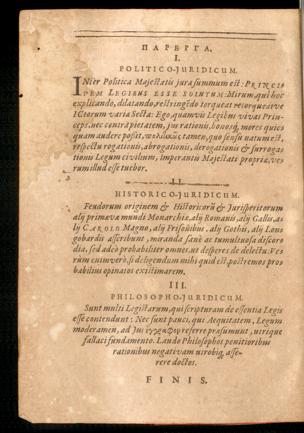 ΠΑΡΕΡΓΑ.
I.
POLITICO-JURIDICUM.
INter Politica Majestatis jura summum est: PRINCI
PEM LEGIBUS ESSE SOLUTUM: Mirum, qui hoc
explicando, dilatando, restringēdo torqueat recorqueatve
ICtorum varia Secta: Ego, quamvis Legibus vivat Prin-
ceps, nec contra pietatem, jus rationis, honores, mores quico
quam audere possit, tamen, quo sensu natum est,
respectu rogationis, abrogationis, derogationis & surroga
tionis Legum civilium, Imperantis Majestati propriæ, ves
rum illud esse tuebor.
II.
HISTORICO-JURIDICUM.
Feudorum originem & Historicorū & Jurisperitorum
alij primævæ mundi Monarchiæ, alij Romanis, alij Gallis, as
lij CAROLO Magno, alij Frisonibus, alij Gothis, alij Lons
gobardis ascribunt, mirandâ sanè ac tumultuosâ discoro
diâ, sed adeò probabiliter omnes, ut desperes de delectu. Ves
rum enimverò, si deligendum mihi quid est, postremos pros
babilius opinatos existimarem.
III.
PHILOSOPHO-JURIDICUM.
Sunt multi Legistarum, qui scripturam de essentia Legis
esse contendunt: Nec sunt pauci, qui Æquitatem, Legum
moderamen, ad Jus referre præsumunt, utrique
fallaci fundamento. Laudo Philosophos penitioribus
rationibus negativam utrobiq, asse-
rere doctos.
FINIS.